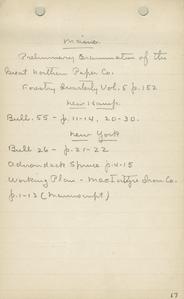 Maine
Preliminary Examination of the
Great Northern Paper Co.
Forestry Quarterly Vol. 5 p. 152
New Hamp.
Bull. 55 - p. 11-14, 20-30.
New York
Bull 26 - p. 21-22
Adirondack Spruce p. 4-15
Working Plan - MacIntyre Iron Co.
p. 1-12 (Manuscript)